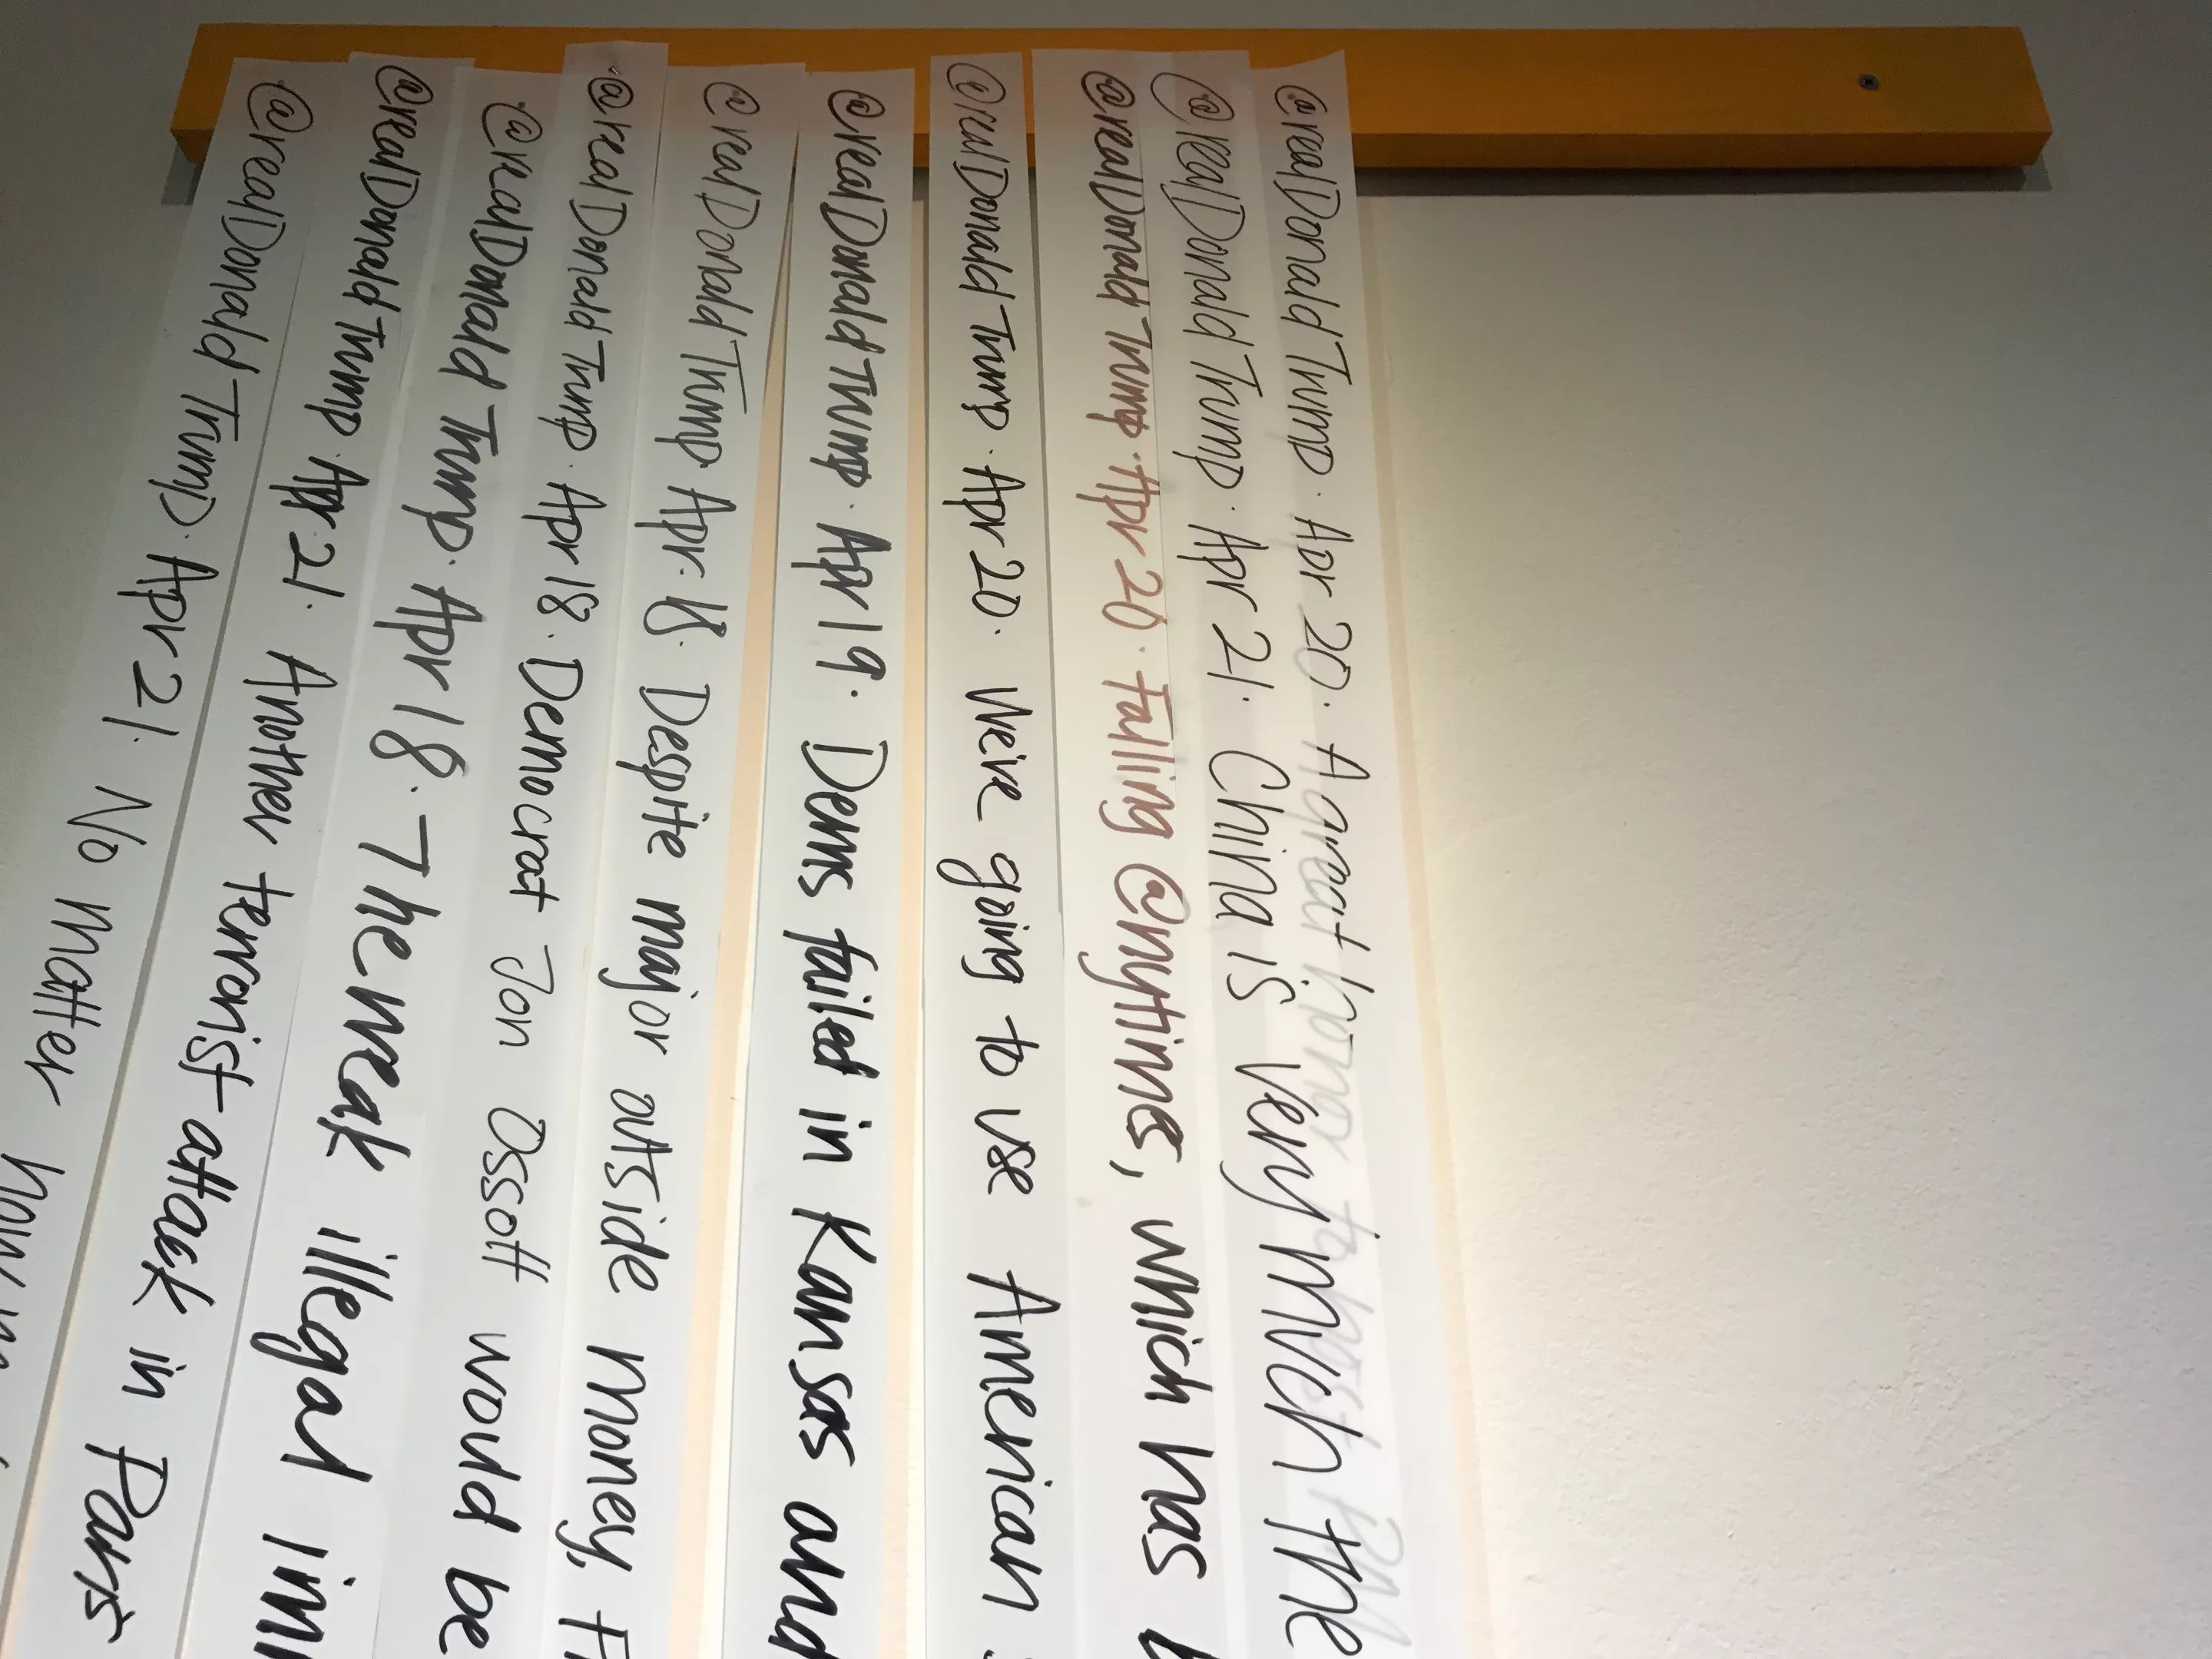 @realDonaldTrump. Apr 21. No matter how
@realDonaldTrump. Apr 21. Another terrorist attack in Paris
@realDonaldTrump. Apr 18. The weak illegal imm
@realDonaldTrump. Apr 18. Democrat Jon Ossoff would be
@realDonaldTrump Apr. 18. Despite major outside money,
@realDonaldTrump. Apr 19. Dems failed in Kansas and
@realDonaldTrump. Apr 20. We're going to use American
@realDonaldTrump. Apr 20. Failing @nytimes, which has
@realDonaldTrump. Apr 21. China is very much the
@realDonaldTrump. Apr 20. A great honor to host